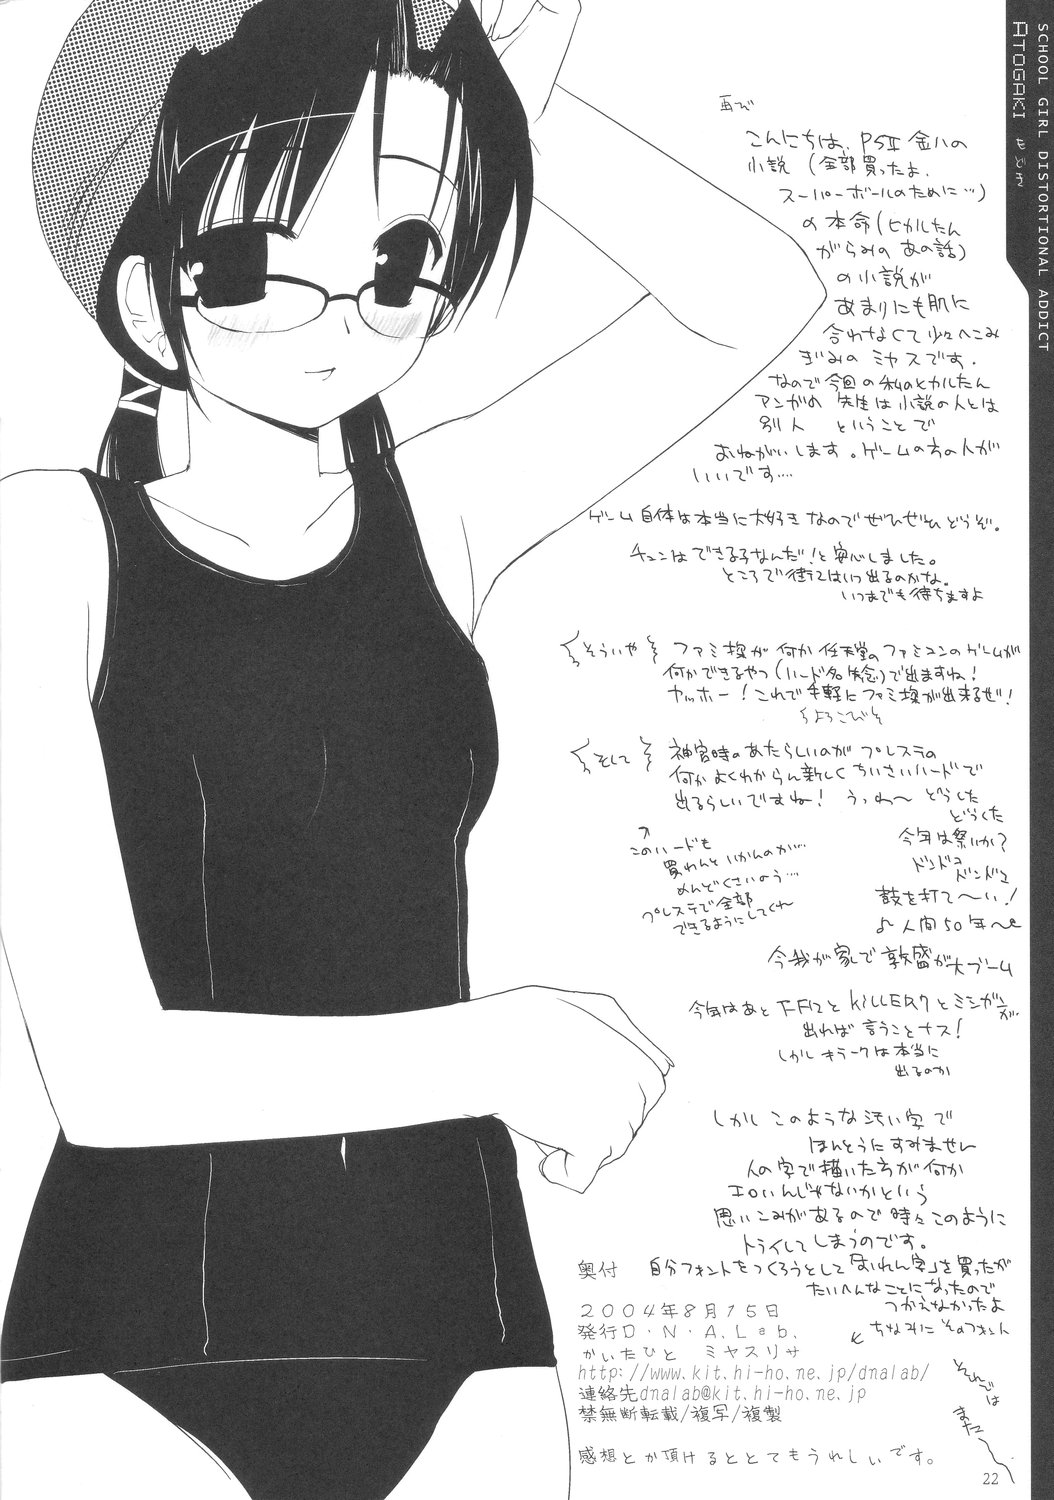 SCHOOL GIRL DISTORTIONAL ADDICT
ATOGAKI
再び
こんにちは、PSⅡ 金八の
小説 (全部買ったよ、
スーパーボールのために…)
の本命(ヒカルたん
がらみの あの話)
の小説が
あまりにも肌に
合わなくて少々へこみ
ぎみの ミヤスです。
なので今回の私のヒカルたん
先生は小説の人とは
別人 ということで
おねがいします。ゲームの方の人が
いいです…
ゲーム自体は本当に大好きなのでぜひぜひどうぞ。
チュンはできる子なんだ!と安心しました。
ところで はいつ出るのかな。
いつまでも待ちますよ
そういや ファミ探が何か任天堂のファミコンのゲームが
何かできるやつ(ハード名失念)で出ますね!
ヤッホー!これで手軽にファミ探が出来るぜ!
よろこび
そして 神宮寺のあたらしいのがプレステの
何かよくわからん新しくちいさいハードで
出るらしいですね! うっわ〜 どうした
どうした
このハードも
買わんといかんのか…
めんどくさいのう…
プレステで全部
できるようにしてくれ
今年は祭いか?
ドンドコ
ドンドコ
鼓を打て〜い!
♪人間50年〜
今我が家で敦盛が大ブーム
今年はあと FF12と KILLER7と ミンガ
出れば言うことナス!
しかしキラー7は本当に
出るのか
しかし このような汚い字で
ほんとうにすみません
人の字で描いた方が何か
エロいんじゃないかという
思いこみがあるので時々このように
トライしてしまうのです。
奥付 自分フォントをつくろうとして「おれん字」を買ったが
たいへんなことになったので
つかえなかったよ
ちなみに そのフォント
2004年8月15日
発行D・N・A.Lab.
かいたひと ミヤスリサ
http://www.kit.hi-ho.ne.jp/dnalab/
連絡先dnalab@kit.hi-ho.ne.jp
禁無断転載/複写/複製
それでは
また
感想とか頂けるととてもうれしいです。
22